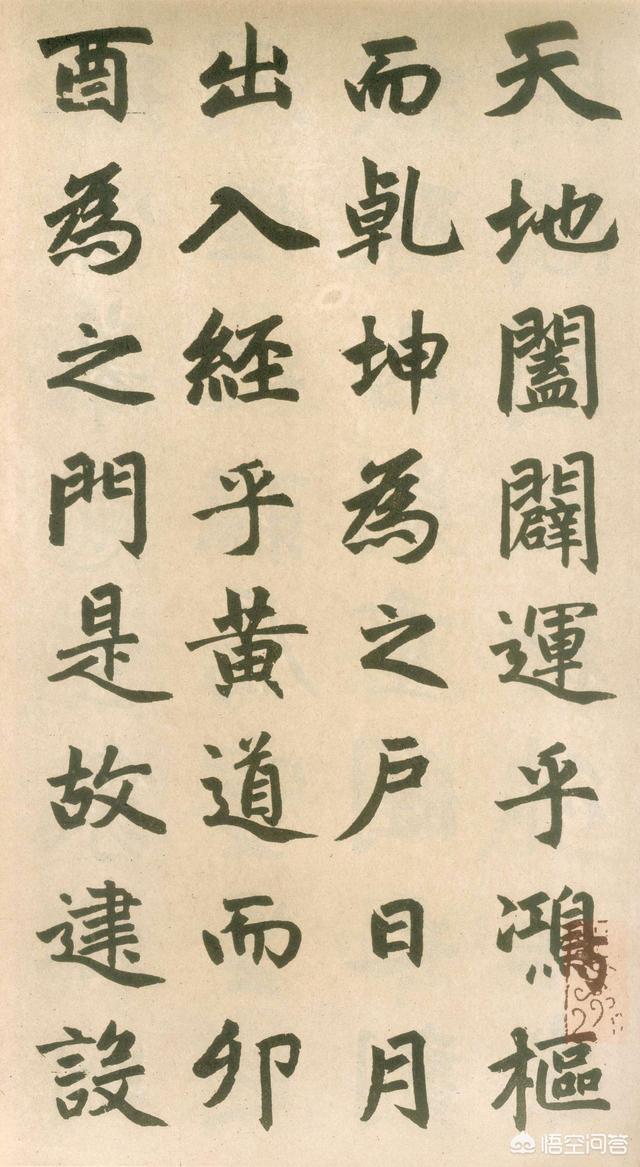 天地闔闢運乎鴻樞
而乾坤為之户日月
出入經乎黃道而卯
酉為之門是故建設
悟空问答